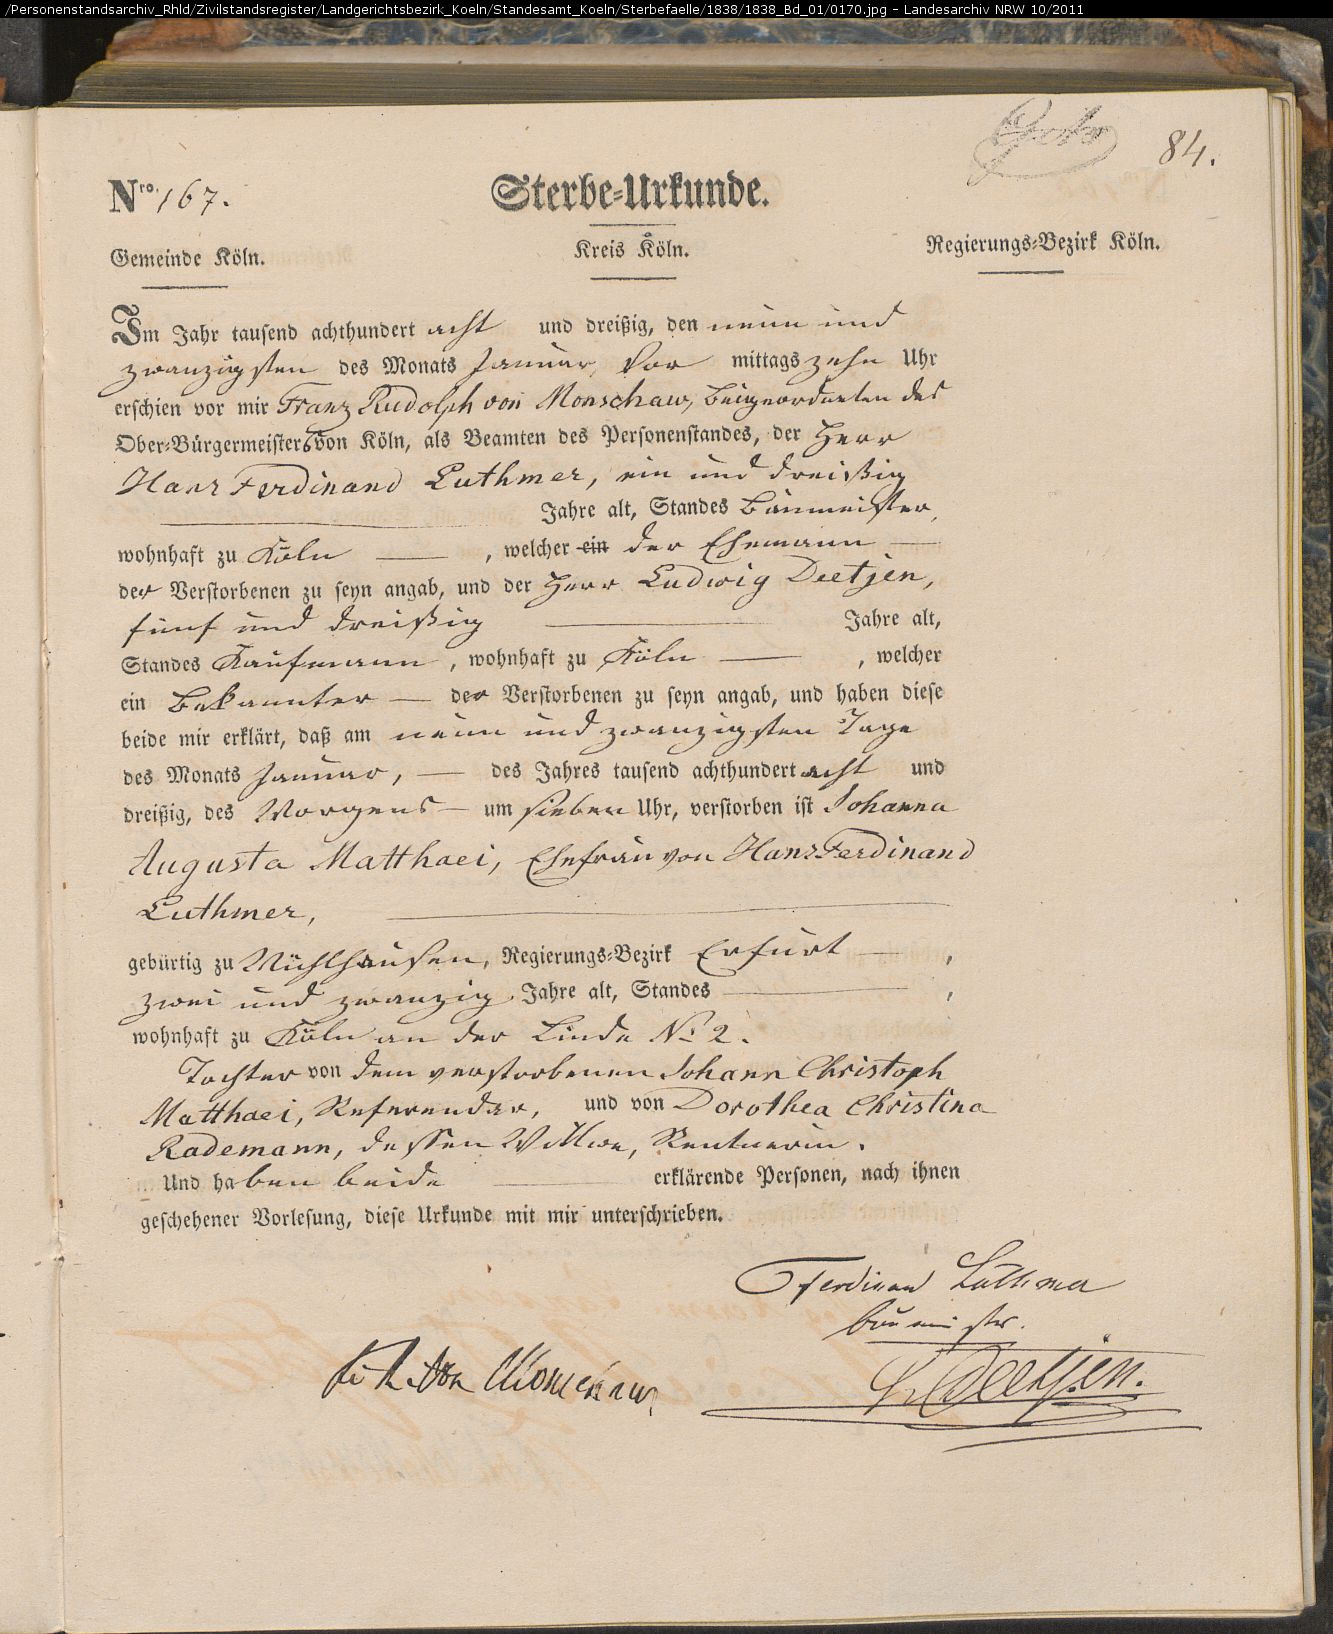 /Personenstandsarchiv_Rhld/Zivilstandsregister/Landgerichtsbezirk_Koeln/Standesamt_Koeln/Sterbefaelle/1838/1838_Bd_01/0170.jpg - Landesarchiv NRW 10/2011
84.
Nro. 167.
Sterbe-Urkunde.
Gemeinde Köln.
Kreis Köln.
Regierungs-Bezirk Köln.
Im Jahr tausend achthundert acht und dreißig, den neun und
zwanzigsten des Monats Januar, Vor mittags zehn Uhr
erschien vor mir Franz Rudolph von Monschaw, Beigeordneten des
Ober-Bürgermeisters von Köln, als Beamten des Personenstandes, der Herr
Hans Ferdinand Luthmer, ein und dreißig
Jahre alt, Standes Baumeister,
wohnhaft zu Köln, welcher ein der Ehemann
der Verstorbenen zu seyn angab, und der Herr Ludwig Deetjen,
fünf und dreißig Jahre alt,
Standes Kaufmann, wohnhaft zu Köln, welcher
ein Bekannter der Verstorbenen zu seyn angab, und haben diese
beide mir erklärt, daß am neun und zwanzigsten Tage
des Monats Januar, des Jahres tausend achthundert acht und
dreißig, des Morgens um sieben Uhr, verstorben ist Johanna
Augusta Matthaei, Ehefrau von Hans Ferdinand
Luthmer,
gebürtig zu Mühlhausen, Regierungs-Bezirk Erfurt,
zwei und zwanzig Jahre alt, Standes ,
wohnhaft zu Köln an der Linde No 2.
Tochter von dem verstorbenen Johann Christoph
Matthaei, Referendar, und von Dorothea Christina
Rademann, dessen Wittwe, Rentnerin.
Und haben beide erklärende Personen, nach ihnen
geschehener Vorlesung, diese Urkunde mit mir unterschrieben.
Ferdinand Luthmer
Baumeister.
F. R. von Monschaw
L. Deetjen.